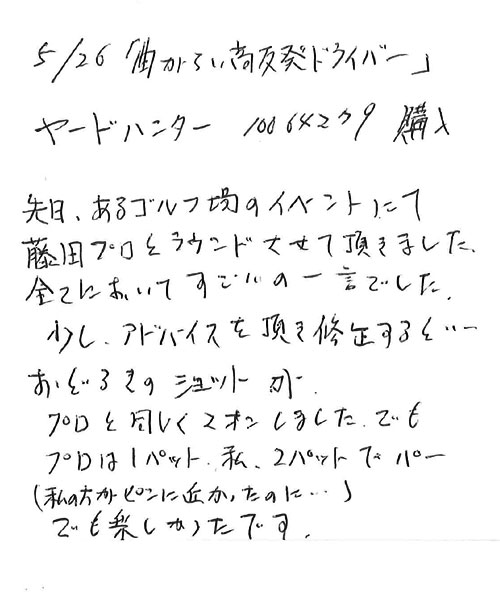 5/26「曲がらない高反発ドライバー」
ヤードハンター 10064279 購入
先日、あるゴルフ場のイベントにて
藤田プロとラウンドさせて頂きました、
全てにおいてすごいの一言でした。
少し、アドバイスを頂き修正すると…
おどろきのショットが
プロと同じく2オンしました。でも
プロは1パット、私、2パットでパー
(私の方がピンに近かったのに…)
でも楽しかったです。